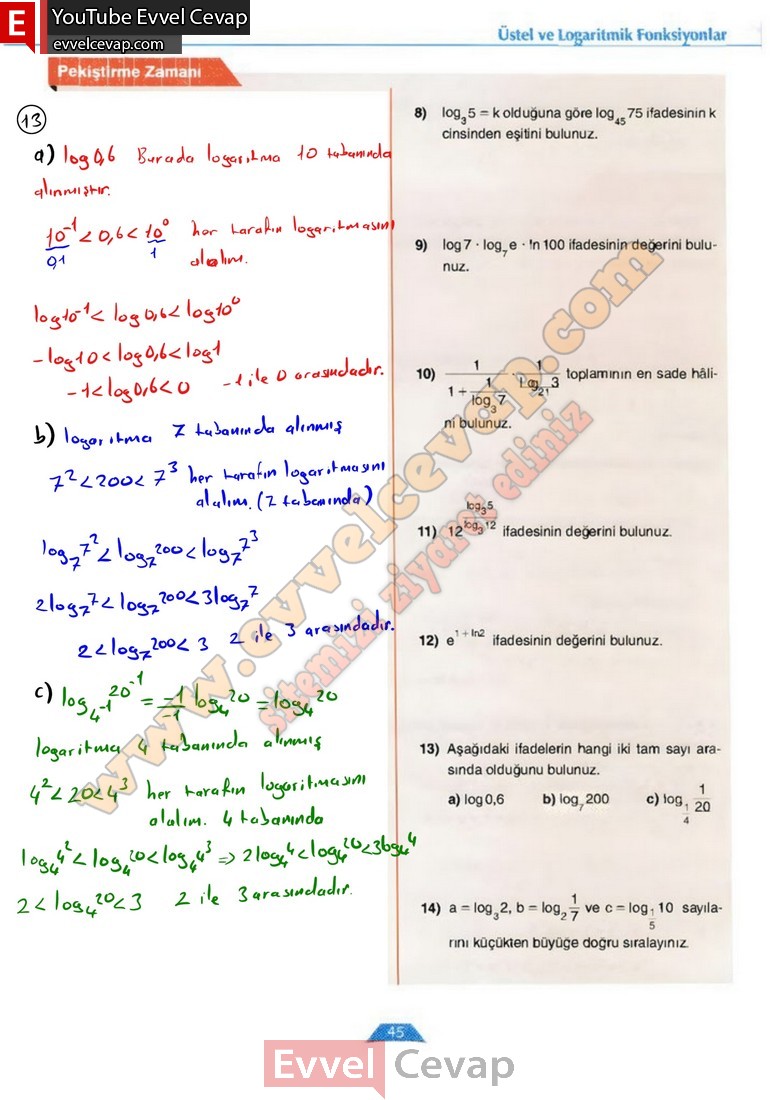 E YouTube Evvel Cevap
evvelcevap.com
Üstel ve Logaritmik Fonksiyonlar
Pekiştirme Zamanı
13
a) log0,6 Burada logaritma 10 tabanında
alınmıştır.
10⁻¹ < 0,6 < 10⁰ her tarafın logaritmasını
0,1 1 alalım.
log10⁻¹ < log0,6 < log10⁰
-log10 < log0,6 < log1
-1 < log0,6 < 0 -1 ile 0 arasındadır.
b) logaritma 7 tabanında alınmış
7² < 200 < 7³ her tarafın logaritmasını
alalım. (7 tabanında)
log₇7² < log₇200 < log₇7³
2log₇7 < log₇200 < 3log₇7
2 < log₇200 < 3 2 ile 3 arasındadır.
c) log₄⁻¹ 20⁻¹ = -1/-1 log₄20 = log₄20
logaritma 4 tabanında alınmış
4² < 20 < 4³ her tarafın logaritmasını
alalım. 4 tabanında
log₄4² < log₄20 < log₄4³ ⇒ 2log₄4 < log₄20 < 3log₄4
2 < log₄20 < 3 2 ile 3 arasındadır.
8) log₃5 = k olduğuna göre log₄₅75 ifadesinin k
cinsinden eşitini bulunuz.
9) log7 · log₇e · ln100 ifadesinin değerini bulu-
nuz.
10) 1/(1 + 1/log₃7) · 1/log₂₁3 toplamının en sade hâli-
ni bulunuz.
11) 12^(log₃5/log₃12) ifadesinin değerini bulunuz.
12) e^(1 + ln2) ifadesinin değerini bulunuz.
13) Aşağıdaki ifadelerin hangi iki tam sayı ara-
sında olduğunu bulunuz.
a) log0,6 b) log₇200 c) log_(1/4) 1/20
14) a = log₃2, b = log₂ 1/7 ve c = log_(1/5) 10 sayıla-
rını küçükten büyüğe doğru sıralayınız.
www.evvelcevap.com
sitemizi ziyaret ediniz
45
Evvel Cevap